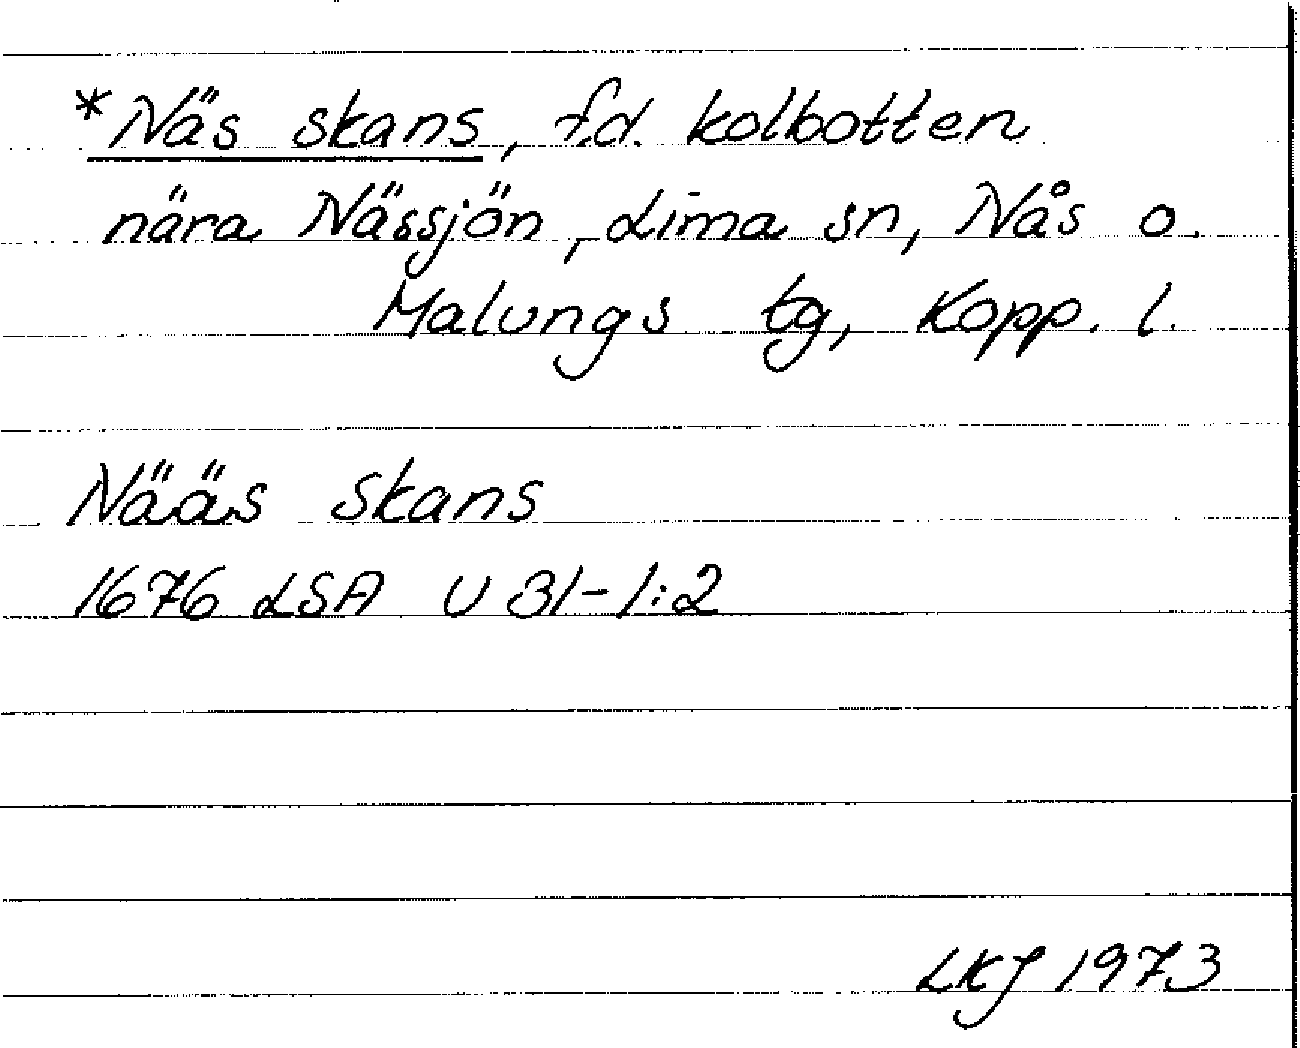 *Näs skans, f.d. kolbotten
nära Nässjön, Lima sn, Nås o.
Malungs tg, Kopp. l.
Nääs Skans
1676 LSA U 31-1:2
LKJ 1973